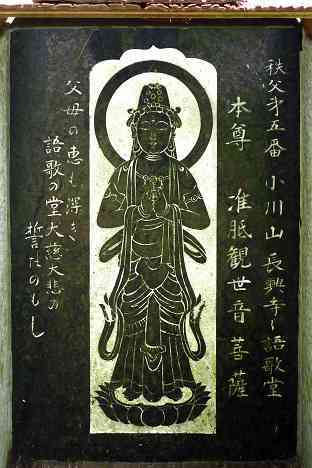 秩父第五番 小川山 長興寺 語歌堂
本尊 准胝観世音菩薩
父母の恵も深き
語歌の堂大慈大悲の
誓たのもし